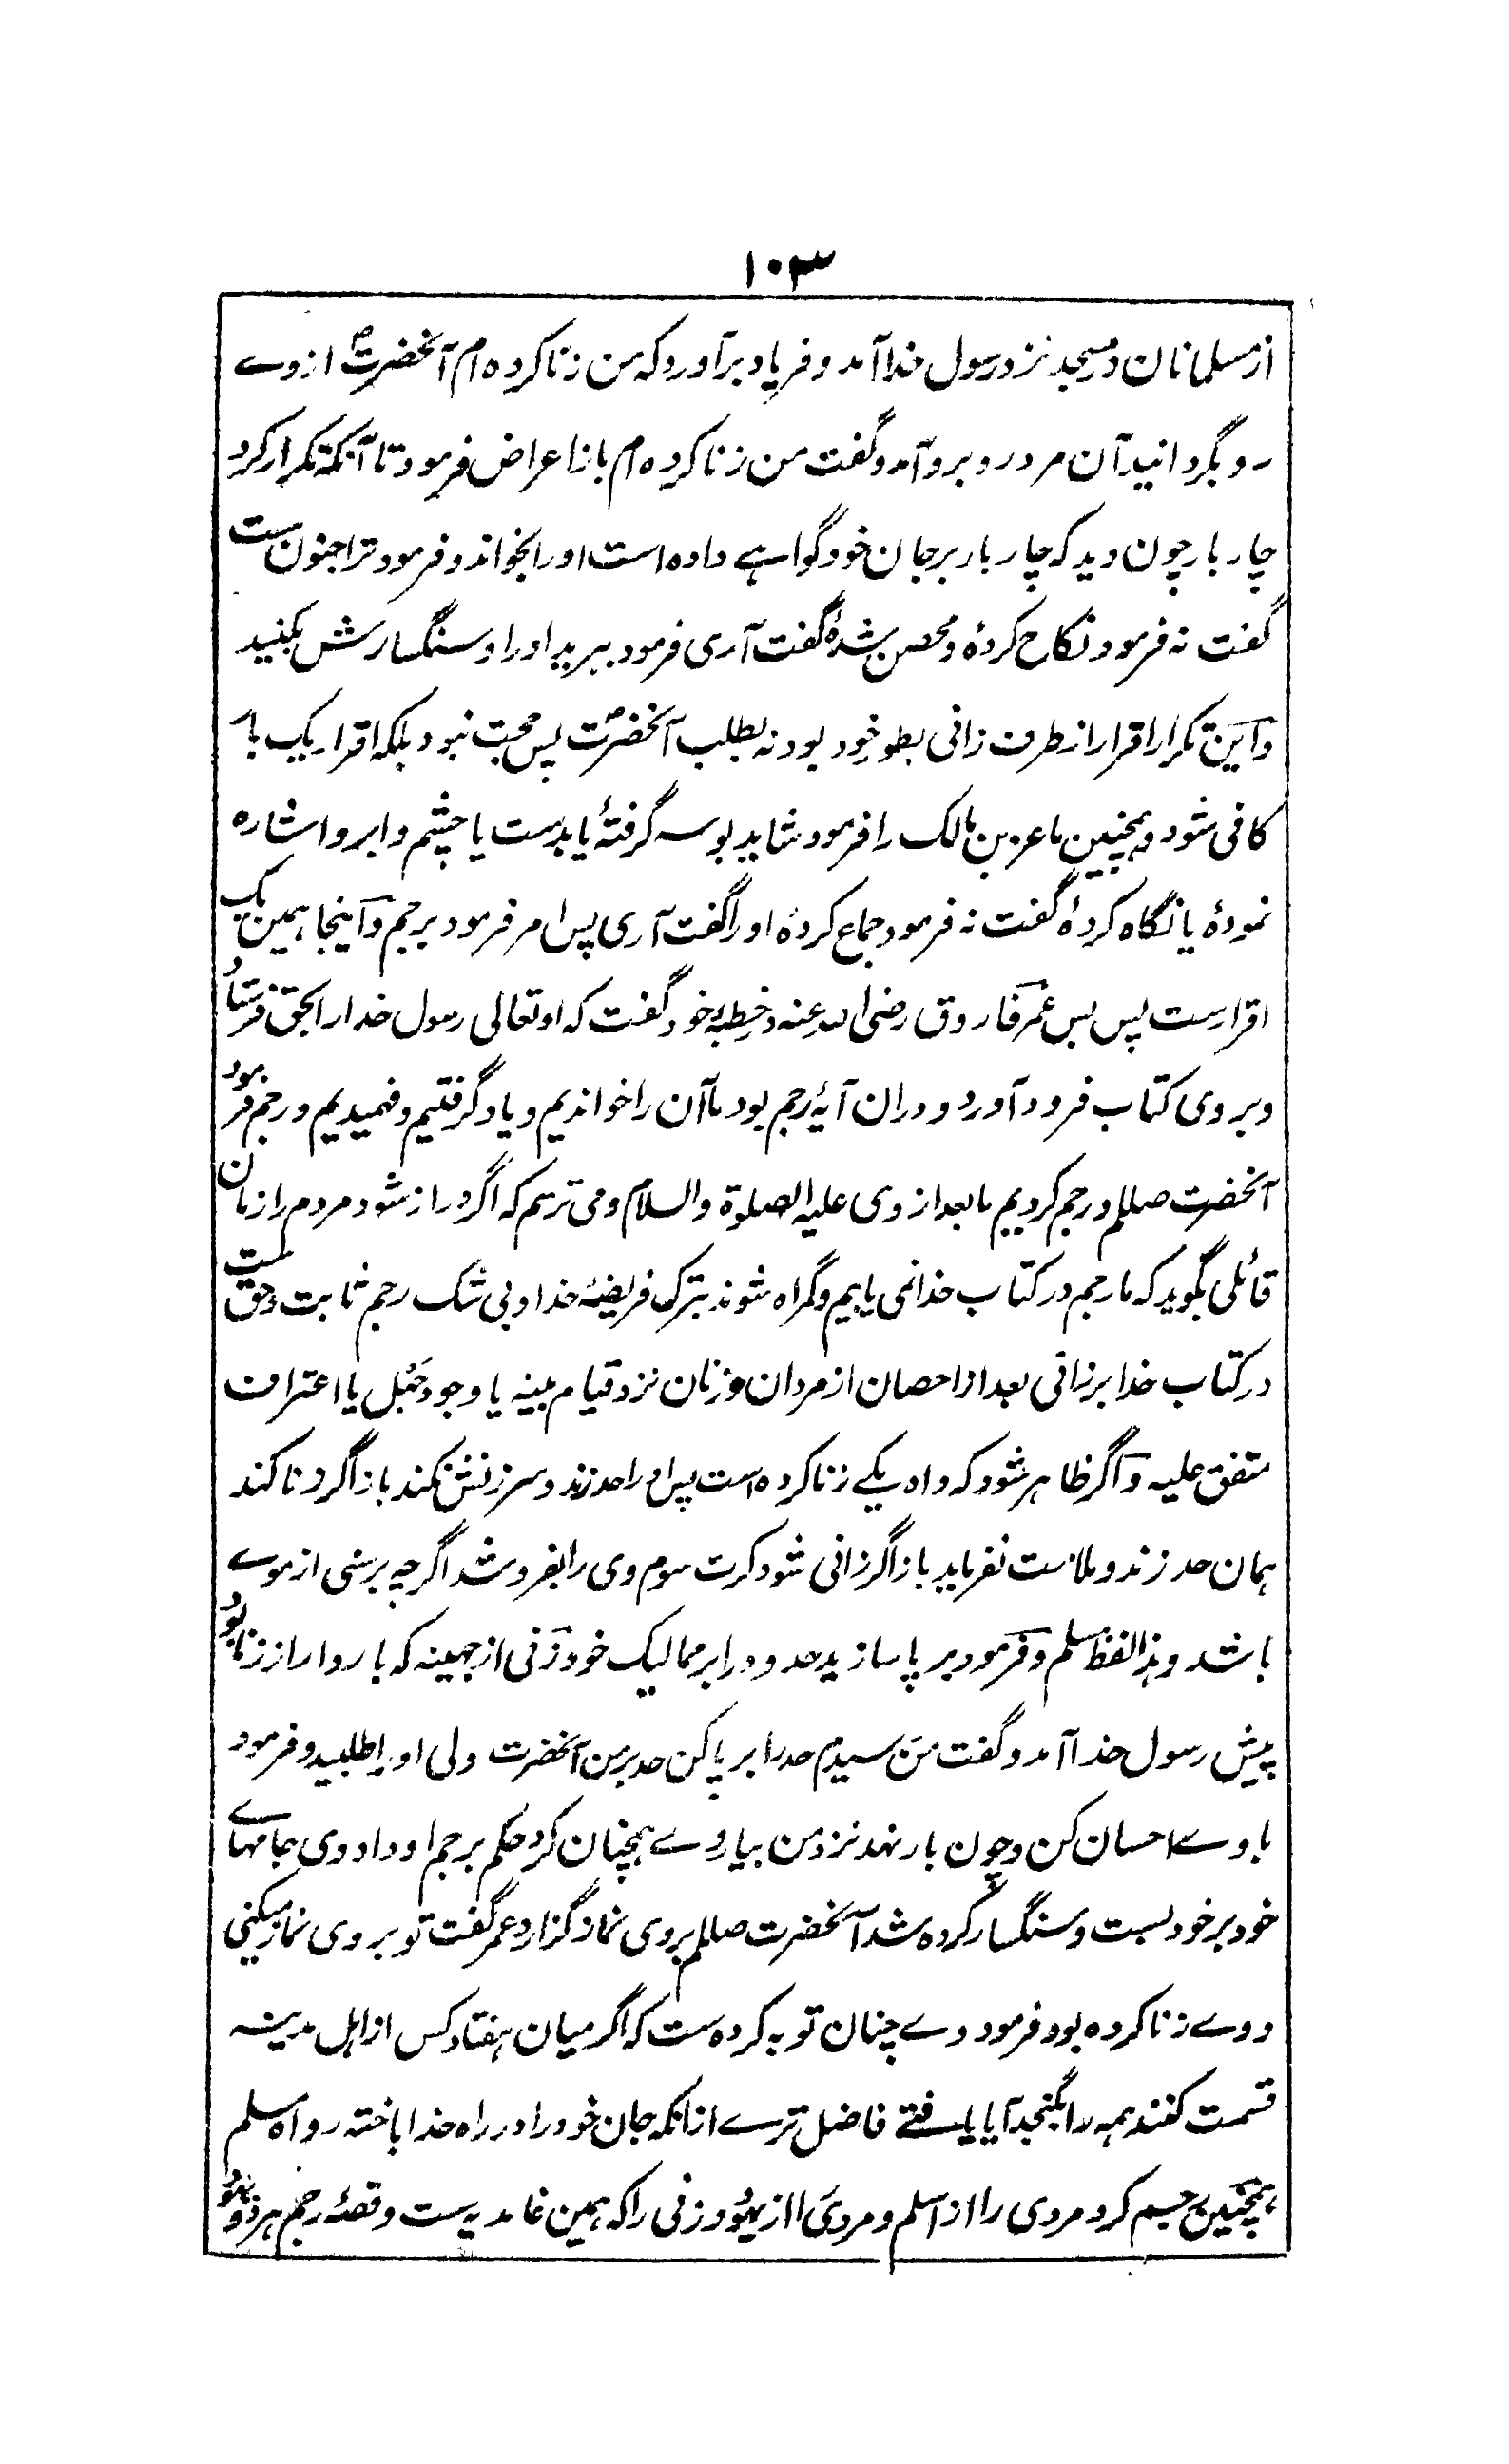 ۱۰۳
از مسلمانان در مسجد نزد رسول خدا آمد و فریاد برآورد که من زنا کرده ام آنحضرتؐ از وے
رو بگردانید آن مرد روبرو آمد و گفت من زنا کرده ام باز اعراض فرمود تا آنکه تکرار کرد
چار بار چون دید که چار بار بر جان خود گواہے داده است او را بخواند و فرمود ترا جنون ست
گفت نه فرمود نکاح کردۂ و محصن شدۂ گفت آری فرمود ببرید او را و سنگسارش بکنید
و این تکرار اقرار از طرف زانی بطور خود بود نه بطلب آنحضرتؐ پس حجت نبود بلکه اقرار یک بار
کافی شود و همچنین ماعز بن مالک را فرمود شاید بوسه گرفتۂ یا بدست یا چشم و ابرو اشاره
نمودۂ یا نگاه کردۂ گفت نه فرمود جماع کردۂ او را گفت آری پس امر فرمود برجم و اینجا همین یک
اقرارست پس بس عمر فاروق رضی الله عنه در خطبۂ خود گفت که او تعالی رسول خدا را بحق فرستاد
و بر وی کتاب فرود آورد و دران آیۂ رجم بود ما آن را خواندیم و یاد گرفتیم و فهمیدیم و رجم فرمود
آنحضرت صللم و رجم کردیم ما بعد از وی علیه الصلوة والسلام و می ترسم که اگر دراز شود مردم را زمان
قائلی بگوید که ما رجم در کتاب خدا نمی یابیم و گمراه شوند بترک فریضۂ خدا و بی شک رجم ثابت و حق ست
در کتاب خدا بر زانی بعد از احصان از مردان و زنان نزد قیام بینه یا وجود حبل یا اعتراف
متفق علیه و اگر ظاهر شود که داه یکے زنا کرده است پس او را حد زند و سرزنش نکند باز اگر زنا کند
همان حد زند و ملامت نفرماید باز اگر زانی شود کرت سوم وی را بفروشد اگرچه برسنی از موے
باشد و هذا لفظ مسلم و فرمود بر پا سازید حدود را بر ممالیک خود زنی از جهینه که باردار از زنا بود
پیش رسول خدا آمد و گفت من رسیدم حد را بر پا کن حد بر من آنحضرت ولی او را طلبید و فرمود
با وے احسان کن و چون بار نهد نزد من بیار وے همچنان کرد حکم برجم او داد وی جامهاے
خود بر خود بست و سنگسار کرده شد آنحضرت صللم بر وی نماز گزارد عمر گفت تو بر وی نماز میکنی
و وے زنا کرده بود فرمود وے چنان توبه کرده ست که اگر میان هفتاد کس از اهل مدینه
قسمت کنند همه را بگنجد آیا یافتے فاضل ترے ازانکه جان خود را در راه خدا باخته رواه مسلم
همچنین رجم کرد مردی را از اسلم و مردی را از یهود و زنی را که همین غامدیه ست و قصۂ رجم هر دو یهود